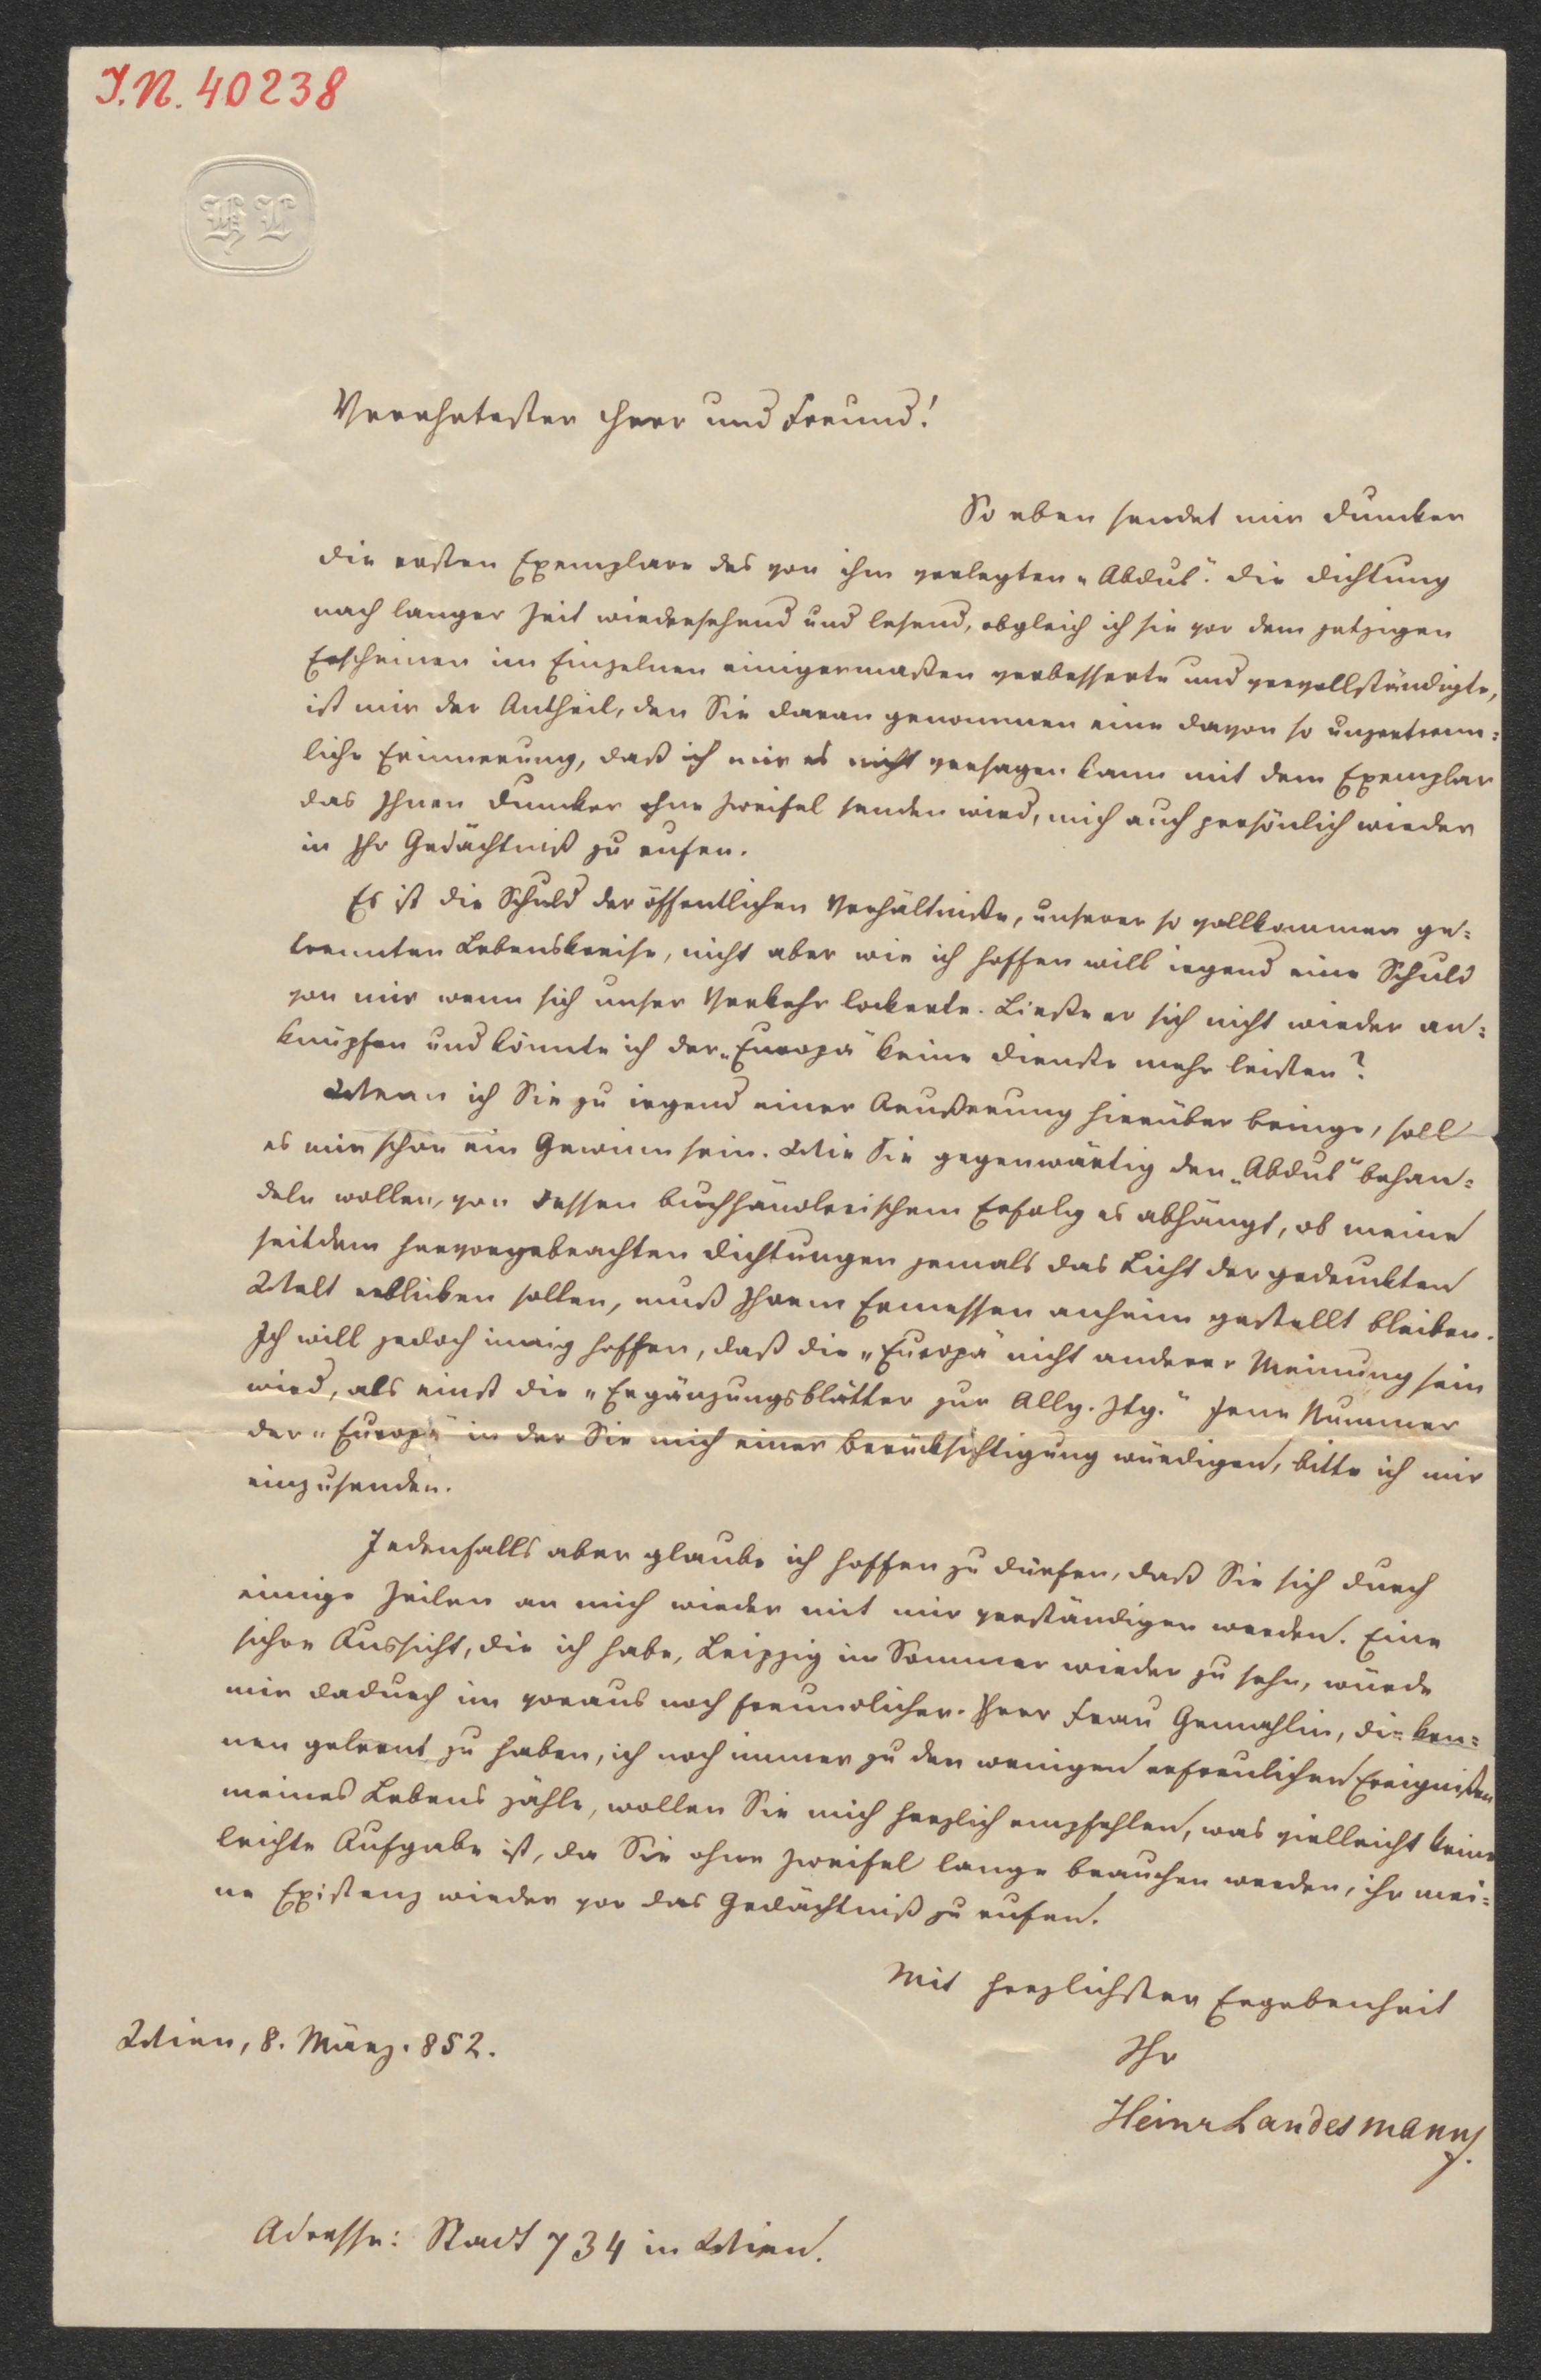 I.N. 40238
HL
Verehrtester Herr und Freund!
So eben sendet mir Duncker
die ersten Exemplare des von ihm verlegten „Abdul“. Die Dichtung
nach langer Zeit wiedersehend und lesend, obgleich ich sie vor dem jetzigen
Erscheinen im Einzelnen einigermaßen verbesserte und vervollständigte,
ist mir der Antheil, den Sie daran genommen eine davon so unzertrenn=
liche Erinnerung, daß ich mir es nicht versagen kann mit dem Exemplar
das Ihnen Duncker ohne Zweifel senden wird, mich auch persönlich wieder
in Ihr Gedächtniß zu rufen.
Es ist die Schuld der öffentlichen Verhältniße, unserer so vollkommen ge=
trennten Lebenskreise, nicht aber wie ich hoffen will irgend eine Schuld
von mir wenn sich unser Verkehr lockerte. Ließe er sich nicht wieder an=
knüpfen und könnte ich der „Europa“ keine Dienste mehr leisten?
Wenn ich Sie zu irgend einer Aeußerung hierüber bringe, soll
es mir schon ein Gewinn sein. Wie Sie gegenwärtig den „Abdul“ behan=
deln wollen, von dessen buchhändlerischem Erfolg es abhängt, ob meine
seitdem hervorgebrachten Dichtungen jemals das Licht der gedruckten
Welt erblicken sollen, muß Ihrem Ermessen anheim gestellt bleiben.
Ich will jedoch innig hoffen, daß die „Europa“ nicht anderer Meinung sein
wird, als einst die „Ergänzungsblätter zur Allg. Ztg.“ Jene Nummer
der „Europa“ in der Sie mich einer Berücksichtigung würdigen, bitte ich mir
einzusenden.
Jedenfalls aber glaube ich hoffen zu dürfen, daß Sie sich durch
einige Zeilen an mich wieder mit mir verständigen werden. Eine
sichre Aussicht, die ich habe, Leipzig im Sommer wieder zu sehn, würde
mir dadurch im voraus noch freundlicher. Ihrer Frau Gemahlin, die ken=
nen gelernt zu haben, ich noch immer zu den wenigen erfreulichen Ereignißen
meines Lebens zähle, wollen Sie mich herzlich empfehlen, was vielleicht keine
leichte Aufgabe ist, da Sie ohne Zweifel lange brauchen werden, ihr mei=
ne Existenz wieder vor das Gedächtniß zu rufen.
Mit herzlichster Ergebenheit
Ihr
Heinr Landesmann.
Wien, 8. März. 852.
Adresse: Stadt 734 in Wien.